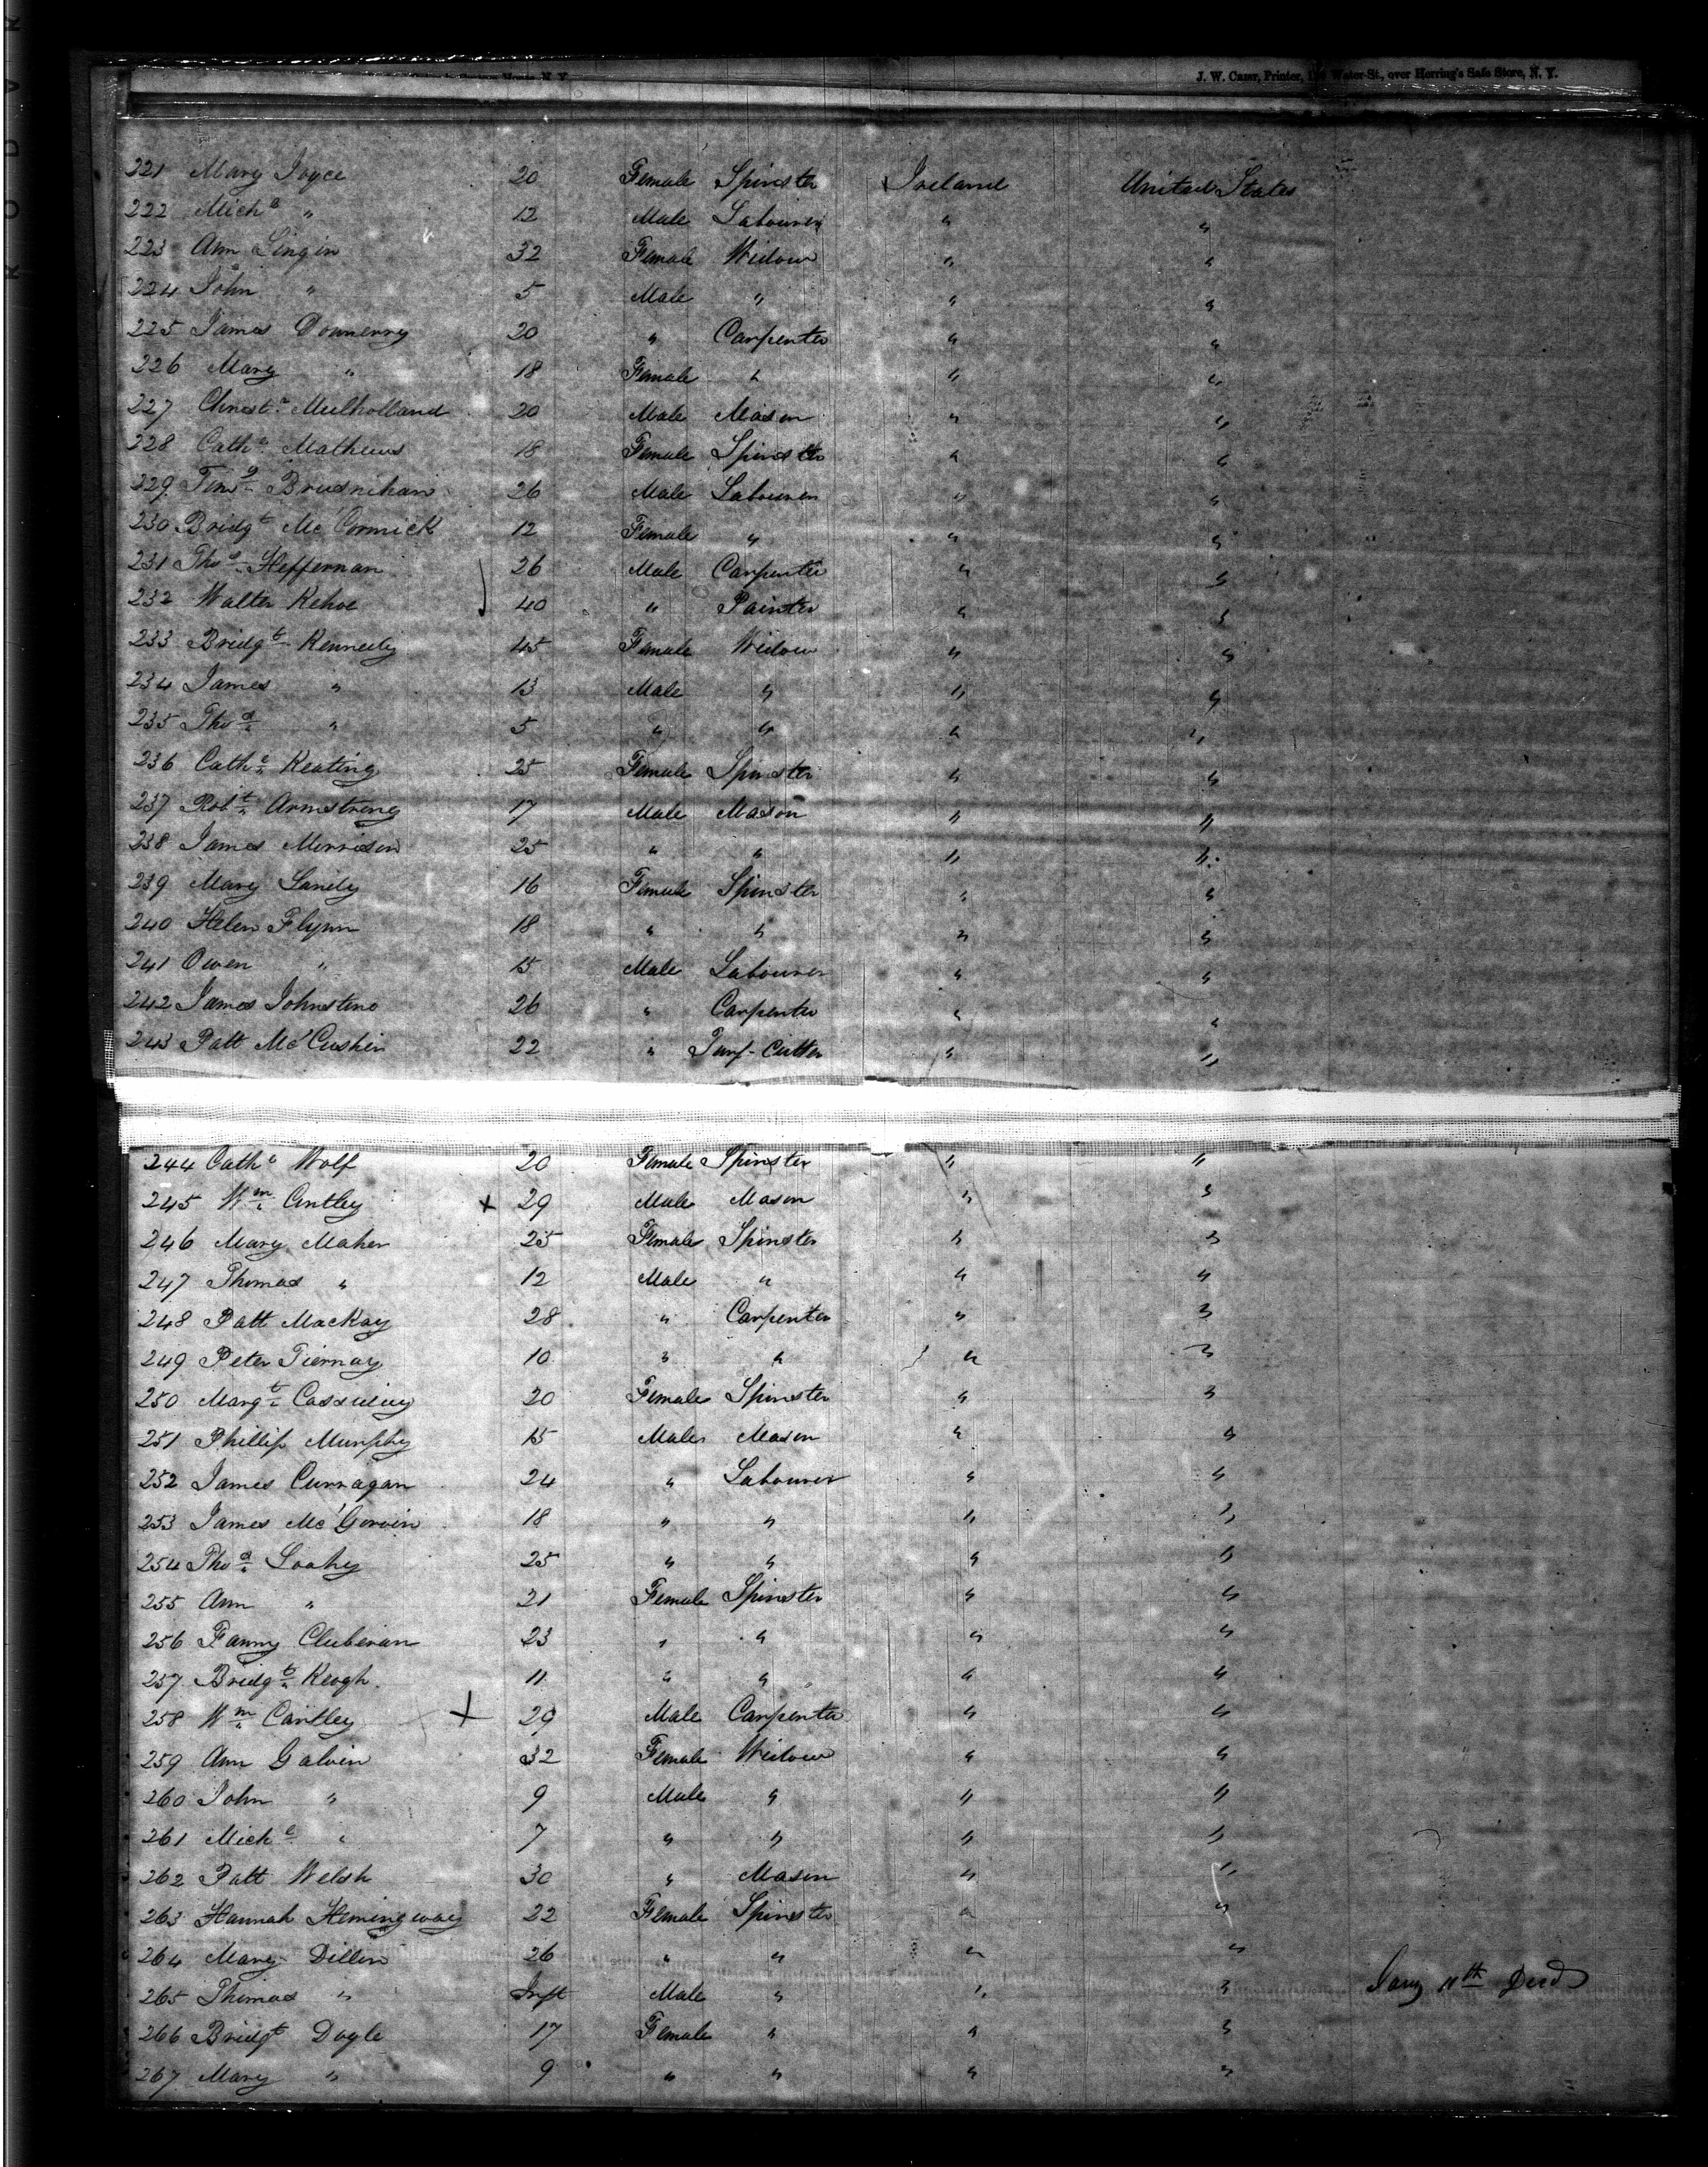 J. W. Carr, Printer, Water-St., over Herring's Safe Store, N. Y.
221 Mary Joyce 20 Female Spinster Ireland United States
222 Mich<sup>l</sup> " 12 Male Labourer " "
223 Ann Lingin 32 Female Widow " "
224 John " 5 Male " " "
225 James Downerry 20 " Carpenter " "
226 Mary " 18 Female " " "
227 Christ<sup>r</sup> Mulholland 20 Male Mason " "
228 Cath<sup>e</sup> Mathews 18 Female Spinster " "
229 Tim<sup>y</sup> Brusnihan 26 Male Labourer " "
230 Bridg<sup>t</sup> McCormick 12 Female " " "
231 Tho<sup>s</sup> Heffernan 26 Male Carpenter " "
232 Walter Kehoe 40 " Painter " "
233 Bridg<sup>t</sup> Kennedy 45 Female Widow " "
234 James " 13 Male " " "
235 Tho<sup>s</sup> " 5 " " " "
236 Cath<sup>e</sup> Keating 25 Female Spinster " "
237 Rob<sup>t</sup> Armstrong 17 Male Mason " "
238 James Morrison 25 " " " "
239 Mary Landy 16 Female Spinster " "
240 Helen Flynn 18 " " " "
241 Owen " 15 Male Labourer " "
242 James Johnstone 26 " Carpenter " "
243 Patt McCusker 22 " Turf-Cutter " "
244 Cath<sup>e</sup> Wolf 20 Female Spinster " "
245 W<sup>m</sup> Cantley x 29 Male Mason " "
246 Mary Maher 25 Female Spinster " "
247 Thomas " 12 Male " " "
248 Patt MacKay 28 " Carpenter " "
249 Peter Tiernay 10 " " " "
250 Marg<sup>t</sup> 20 Female Spinster " "
251 Phillip Murphy 15 Male Mason " "
252 James Curragan 24 " Labourer " "
253 James McGovern 18 " " " "
254 Tho<sup>s</sup> Loahy 25 " " " "
255 Ann " 21 Female Spinster " "
256 Fanny Cluberan 23 " " " "
257 Bridg<sup>t</sup> Keogh 11 " " " "
258 W<sup>m</sup> Cantley x 29 Male Carpenter " "
259 Ann Galvin 32 Female Widow " "
260 John " 9 Male " " "
261 Mich<sup>l</sup> " 7 " " " "
262 Patt Welsh 30 " Mason " "
263 Hannah Hemingway 22 Female Spinster " "
264 Mary Dillon 26 " " " "
265 Thomas " Inft Male " " " Jany 11<sup>th</sup> Died
266 Bridg<sup>t</sup> Doyle 17 Female " " "
267 Mary " 9 " " " "